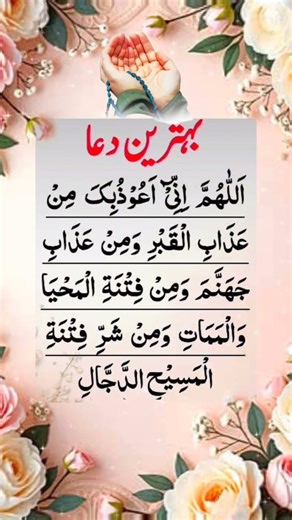 بہترین دعا
اَللّٰهُمَّ اِنِّیْۤ اَعُوْذُبِکَ مِنْ
عَذَابِ الْقَبْرِ وَمِنْ عَذَابِ
جَهَنَّمَ وَمِنْ فِتْنَةِ الْمَحْيَا
وَالْمَمَاتِ وَمِنْ شَرِّ فِتْنَةِ
الْمَسِيْحِ الدَّجَّالِ